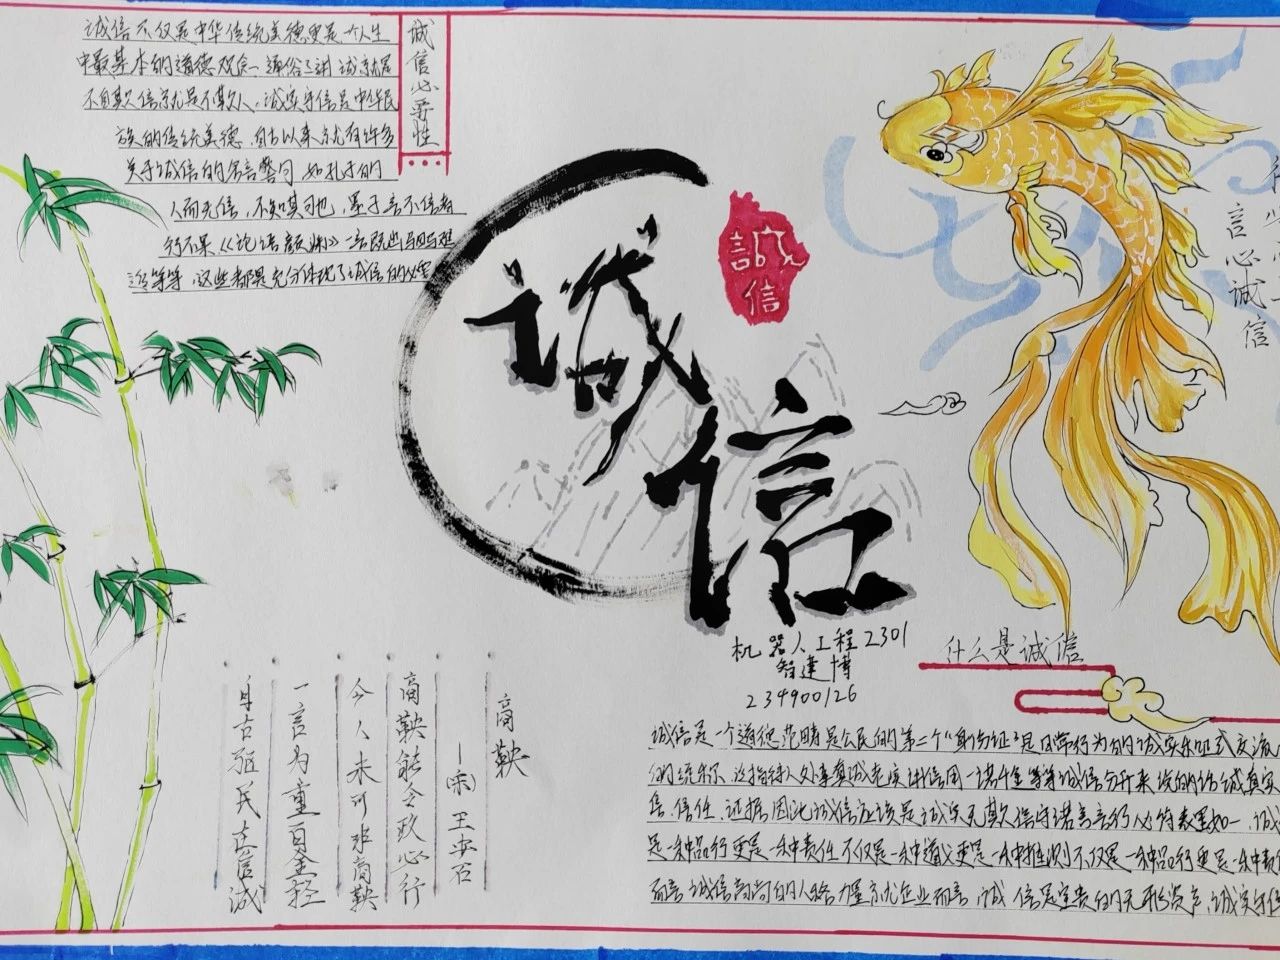 诚信必要性
诚信不仅是中华传统美德更是一个人生
中最基本的道德观念 通俗了讲 诚就是
不自欺 信就是不欺人，诚实守信是中华民
族的传统美德，自古以来就有许多
关于诚信的名言警句 如孔子的
人而无信，不知其可也，墨子言不信者
行不果《论语颜渊》一言既出驷马难
追等等，这些都是充分体现了诚信的必要
诚信
誠信
言心诚信
机器人工程2301
智建博
234900126
商鞅
—宋 王安石
自古驱民在信诚
一言为重百金轻
今人未可非商鞅
商鞅能令政必行
什么是诚信
诚信是一个道德范畴是公民的第二个“身份证”是日常行为的诚实和正式交流
的统称 泛指待人处事真诚老实讲信用 一诺千金等等 诚信分开来说的话诚真实
信，信任，证据 因此诚信应该是诚实无欺信守诺言言行相符表里如一，诚
是一种品行更是一种责任 不仅是一种道义更是一种准则不仅是一种品行更是一种责
而言诚信高尚的人格力量 就企业而言，诚信是宝贵的无形资产，诚实守信